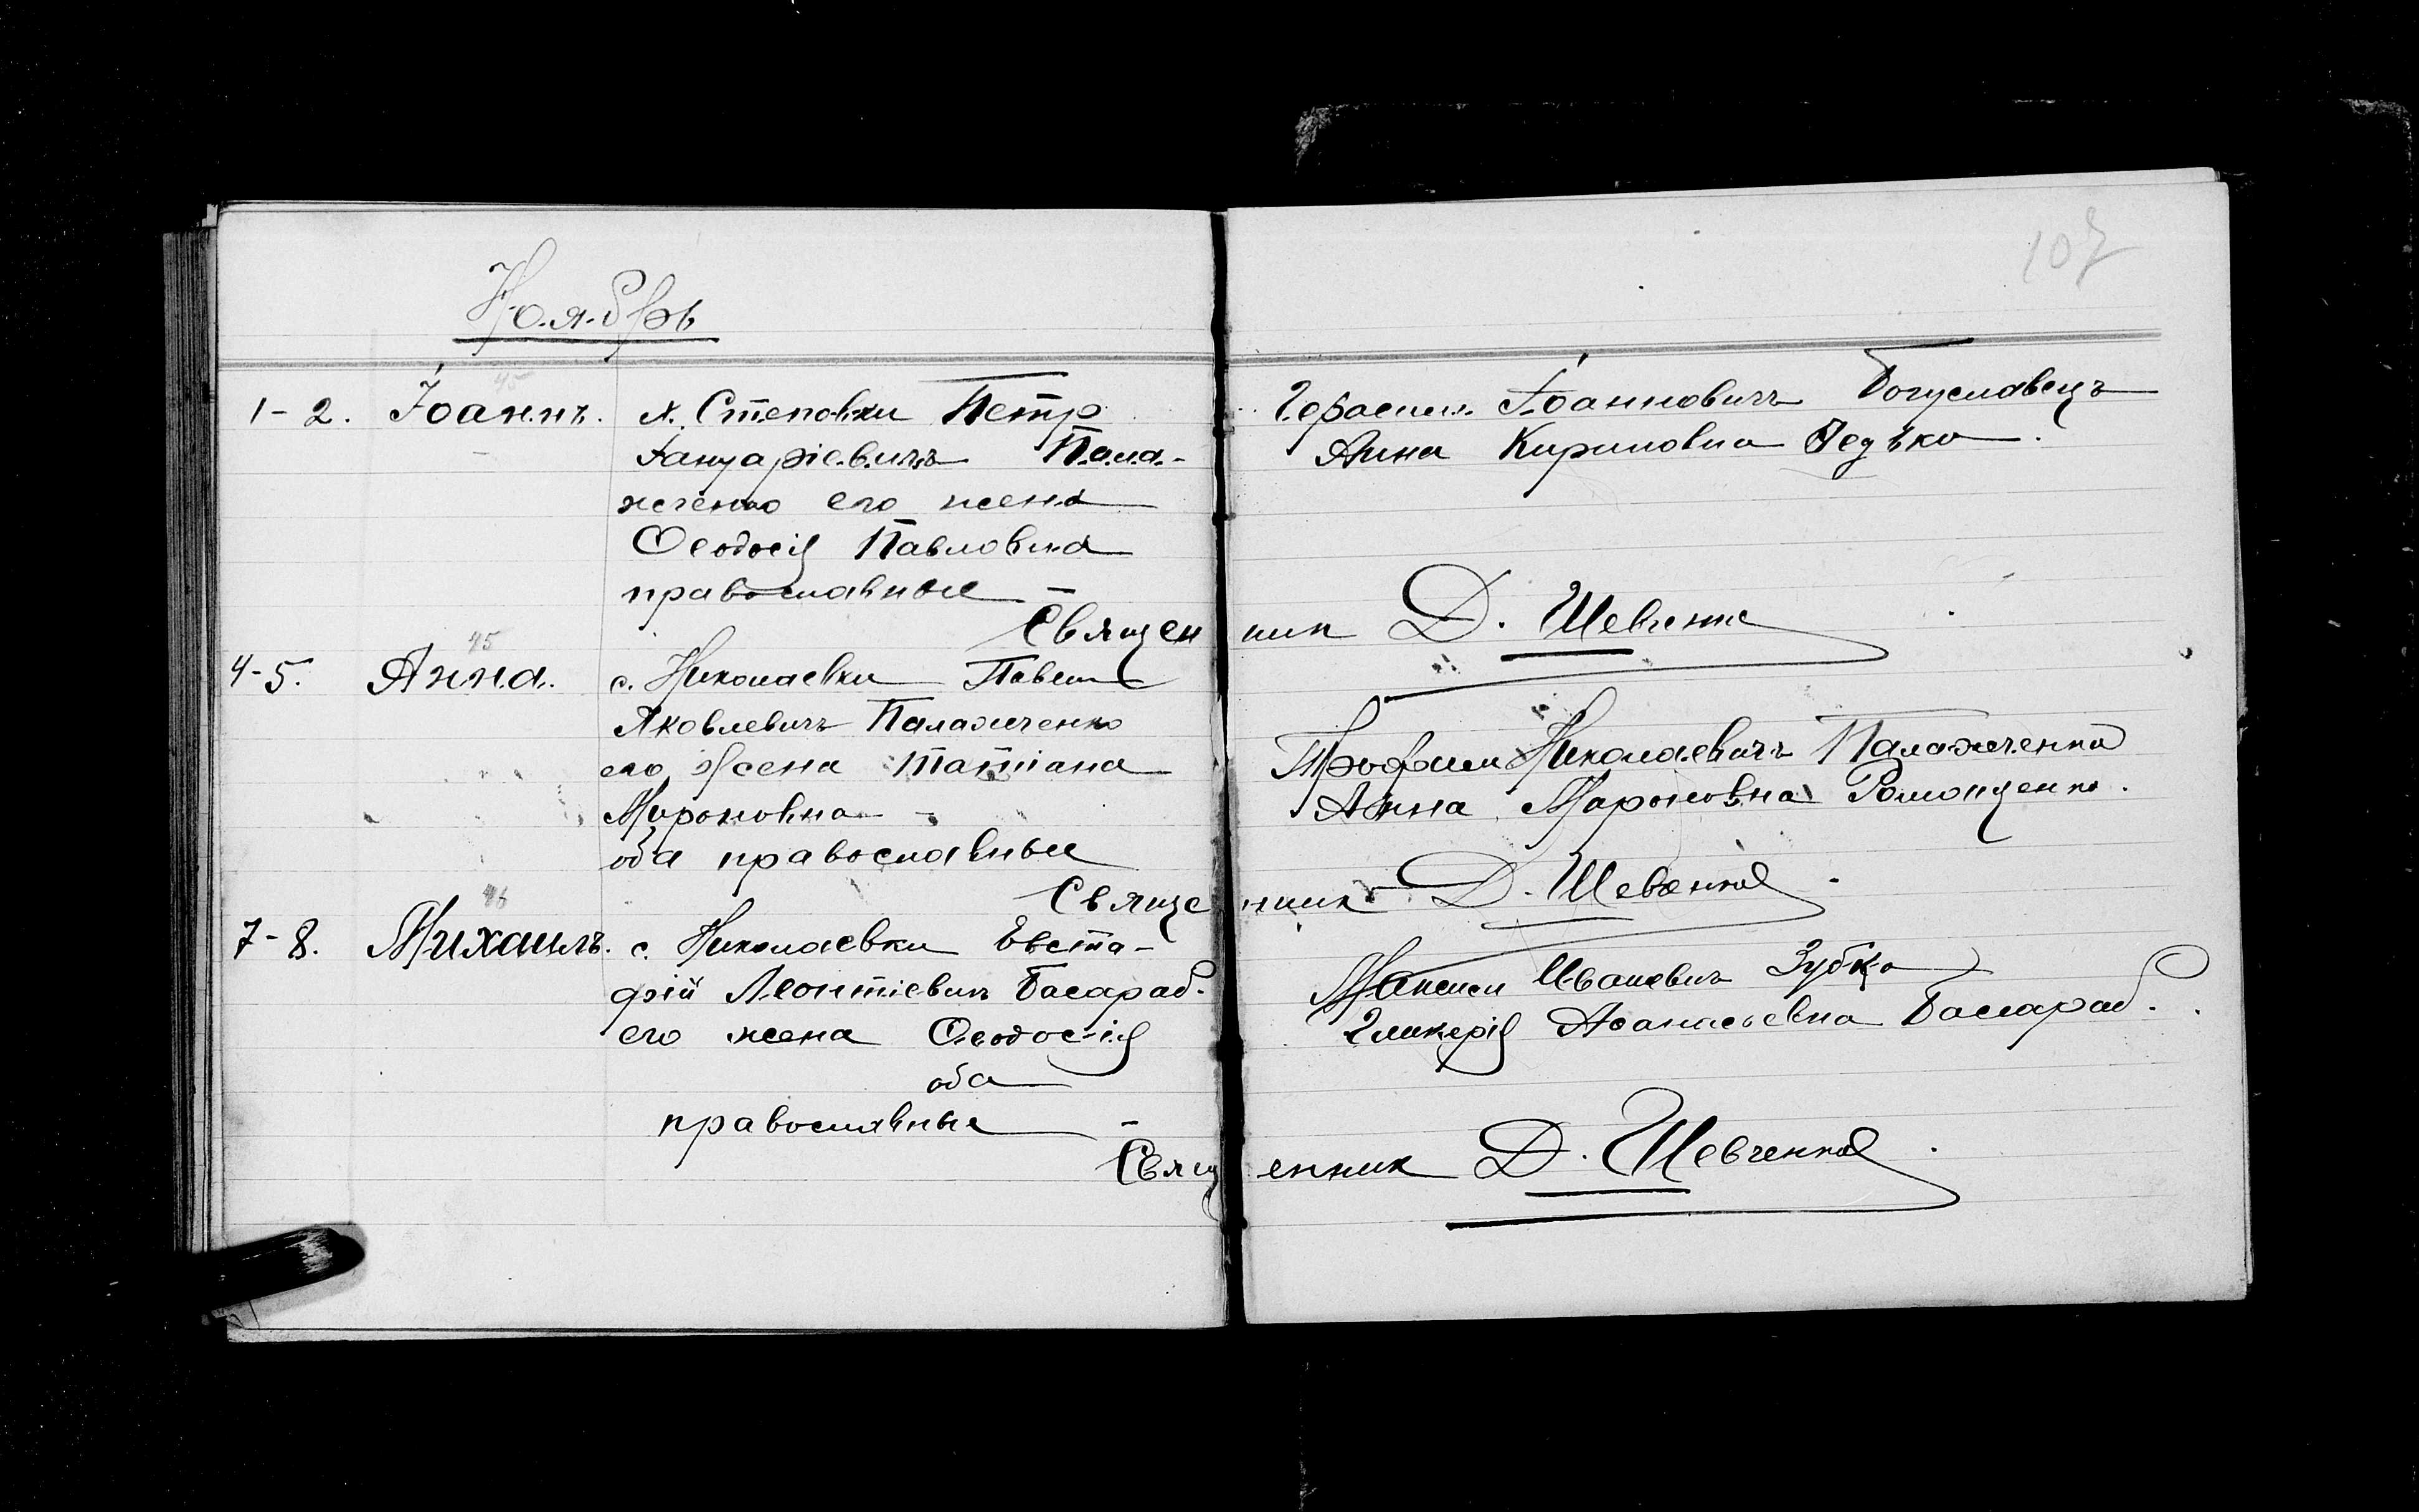 Ноябрь
107
45
1-2. Іоаннъ. х. Степовки Петр
Іануаріевичъ Пала-
жченко его жена
Ѳеодосія Павловна
православные
Герасим Іоанновичъ Богуславецъ
Анна Кириловна Редько.
Священник Д. Шевченко
45
4-5. Анна. с. Николаевки Павел
Яковлевичъ Палажченко
его жена Татіана
Мироновна
оба православные
Трофим Николаевичъ Палажченко
Анна Мароновна Романенко.
Священник Д. Шевченко
46
7-8. Михаилъ. с. Николаевки Евста-
фій Леонтіевич Басараб.
его жена Ѳеодосія
оба
православные
Максим Иванович Зубко
Гликерія Аѳанасьевна Басараб.
Священник Д. Шевченко